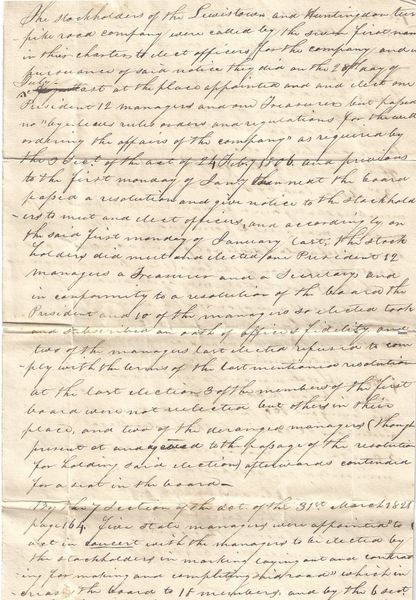 The stockholders of the Lewistown and Huntingdon turn
pike road company were called by the seven first named
in this charter to elect officers for the company and in
pursuance of said notice they did on the 28th day of
July last at the place appointed and elect one
President 12 managers and one Treasurer but passed
no "by laws rules orders and regulations for the well
ordering the affairs of the company" as required by
the 3 Sec. of the act of 24 Feby 1806 and previous
to the first monday of Jany then next the board
passed a resolution and give notice to the stockhold
ers to meet and elect officers, and accordingly on
the said first monday of January last, the stock
holders did meet and elected one President 12
managers a Treasurer and a Secretary and
in conformity to a resolution of the board the
President and 10 of the managers so elected took
and subscribed an oath of office & fidelity and
two of the managers last elected refused to com
ply with the terms of the last mentioned resolution
at the last election 3 of the members of the first
board were not reelected but others in their
place, and two of the deranged managers (though
present at and agreed to the passage of the resolution
for holding said election) afterwards contended
for a seat in the board
By the 7 Section of the act of the 31st March 1821
page 164 Five state managers were appointed "to
act in concert with the managers to be elected by
the stockholders in marking laying out and contract
ing for making and completing said road" which in
creases the board to 18 members, and by the 6 sec.